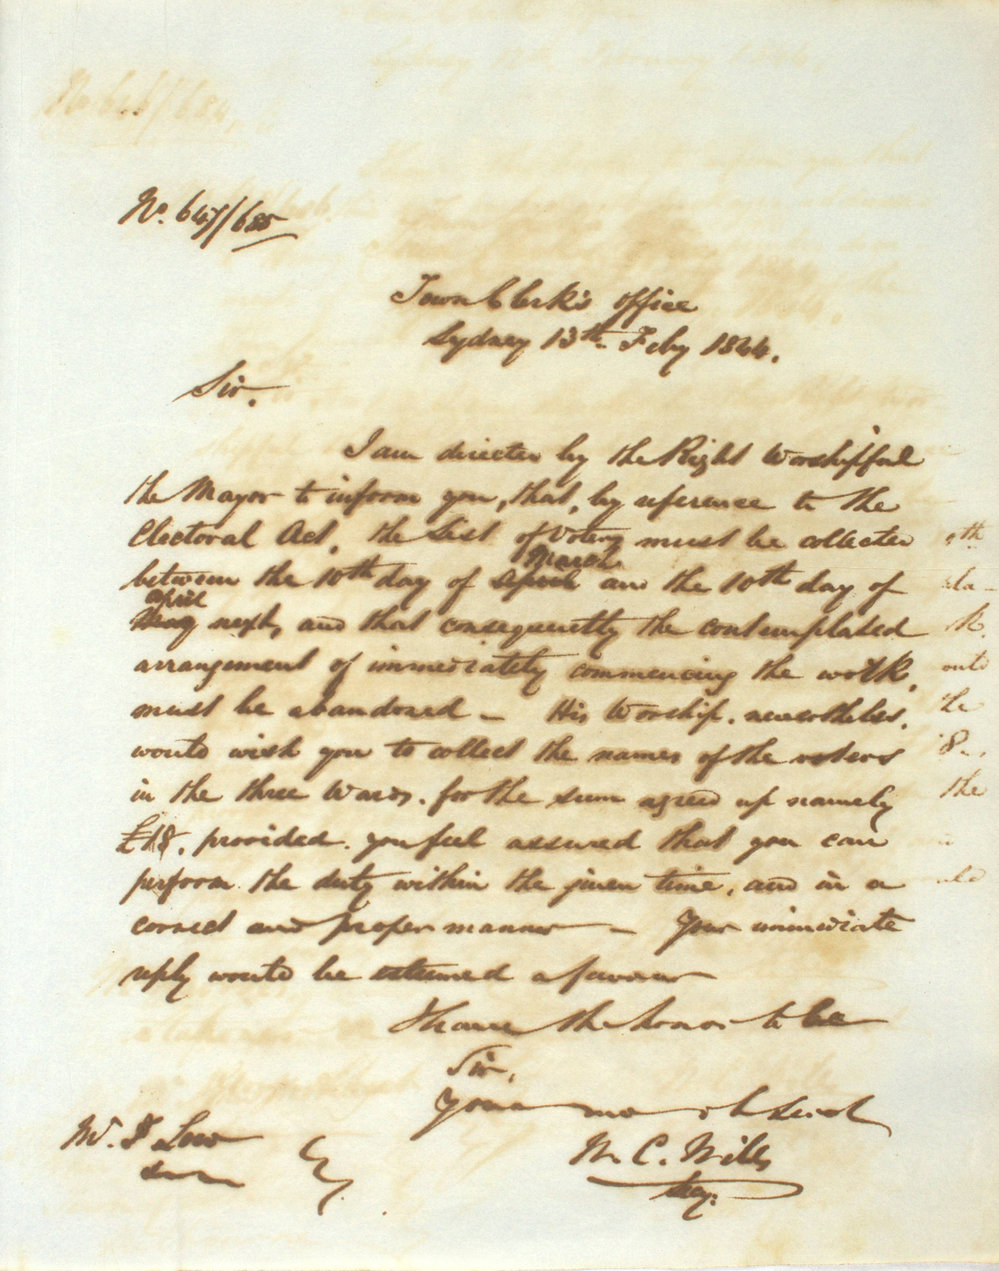 No. 647/685
Town Clerk's office
Sydney 13th Feby 1844.
Sir.
I am directed by the Right Worshipful
the Mayor to inform you, that, by reference to the
Electoral Act, the List of Voters must be collected
March
between the 10th day of April and the 10th day of
April
May next, and that consequently the contemplated
arrangement of immediately commencing the work,
must be abandoned – His Worship, nevertheless,
would wish you to collect the names of the voters
in the three Wards, for the sum agreed up namely
£18, provided you feel assured that you can
perform the duty within the given time, and in a
correct and proper manner – Your immediate
reply would be esteemed a favour
I have the honor to be
Sir,
Your mo ob Servt
W. C. Wills
Mr. Low